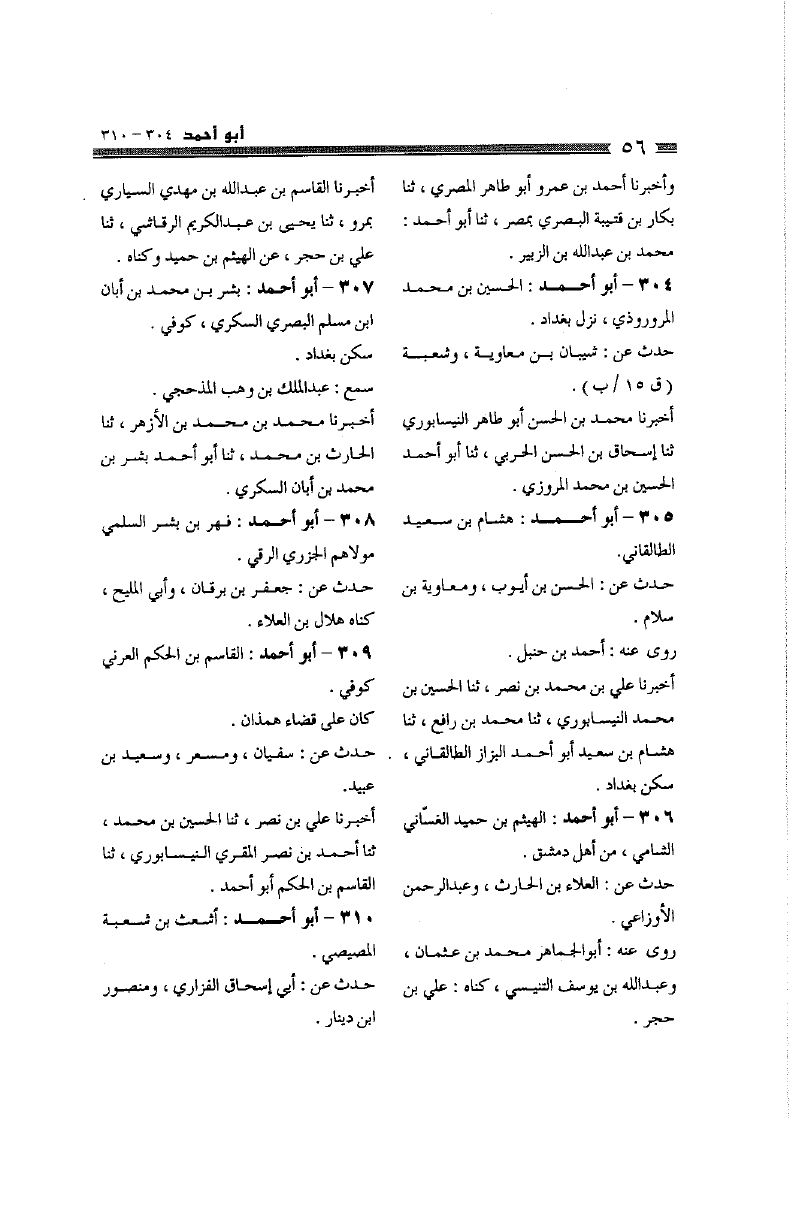 أبو أحمد ٣٠٤ - ٣١٠
٥٦
وأخبرنا أحمد بن عمرو أبو طاهر المصري ، ثنا
بكار بن قتيبة البصري بمصر ، ثنا أبو أحمد :
محمد بن عبدالله بن الزبير .
٣٠٤ - أبو أحمد : الحسين بن محمد
المروروذي ، نزل بغداد .
حدث عن : شيبان بن معاوية ، وشعبة
( ق ١٥ / ب ) .
أخبرنا محمد بن الحسن أبو طاهر النيسابوري
ثنا إسحاق بن الحسن الحربي ، ثنا أبو أحمد
الحسين بن محمد المروزي .
٣٠٥ - أبو أحمد : هشام بن سعيد
الطالقاني.
حدث عن : الحسن بن أيوب ، ومعاوية بن
سلام .
روى عنه : أحمد بن حنبل .
أخبرنا علي بن محمد بن نصر ، ثنا الحسين بن
محمد النيسابوري ، ثنا محمد بن رافع ، ثنا
هشام بن سعيد أبو أحمد البزاز الطالقاني ،
سكن بغداد .
٣٠٦ - أبو أحمد : الهيثم بن حميد الغسّاني
الشامي ، من أهل دمشق .
حدث عن : العلاء بن الحارث ، وعبدالرحمن
الأوزاعي .
روى عنه : أبوالجماهر محمد بن عثمان ،
وعبدالله بن يوسف التنيسي ، كناه : علي بن
حجر .
أخبرنا القاسم بن عبدالله بن مهدي السياري
بمرو ، ثنا يحيى بن عبدالكريم الرقاشي ، ثنا
علي بن حجر ، عن الهيثم بن حميد وكناه .
٣٠٧ - أبو أحمد : بشر بن محمد بن أبان
ابن مسلم البصري السكري ، كوفي .
سكن بغداد .
سمع : عبدالملك بن وهب المذحجي .
أخبرنا محمد بن محمد بن الأزهر ، ثنا
الحارث بن محمد ، ثنا أبو أحمد بشر بن
محمد بن أبان السكري .
٣٠٨ - أبو أحمد : فهر بن بشر السلمي
مولاهم الجزري الرقي .
حدث عن : جعفر بن برقان ، وأبي المليح ،
كناه هلال بن العلاء .
٣٠٩ - أبو أحمد : القاسم بن الحكم العرني
كوفي .
كان على قضاء همذان .
حدث عن : سفيان ، ومسعر ، وسعيد بن
عبيد.
أخبرنا علي بن نصر ، ثنا الحسين بن محمد ،
ثنا أحمد بن نصر المقري النيسابوري ، ثنا
القاسم بن الحكم أبو أحمد .
٣١٠ - أبو أحمد : أشعث بن شعبة
المصيصي .
حدث عن : أبي إسحاق الفزاري ، ومنصور
ابن دينار .